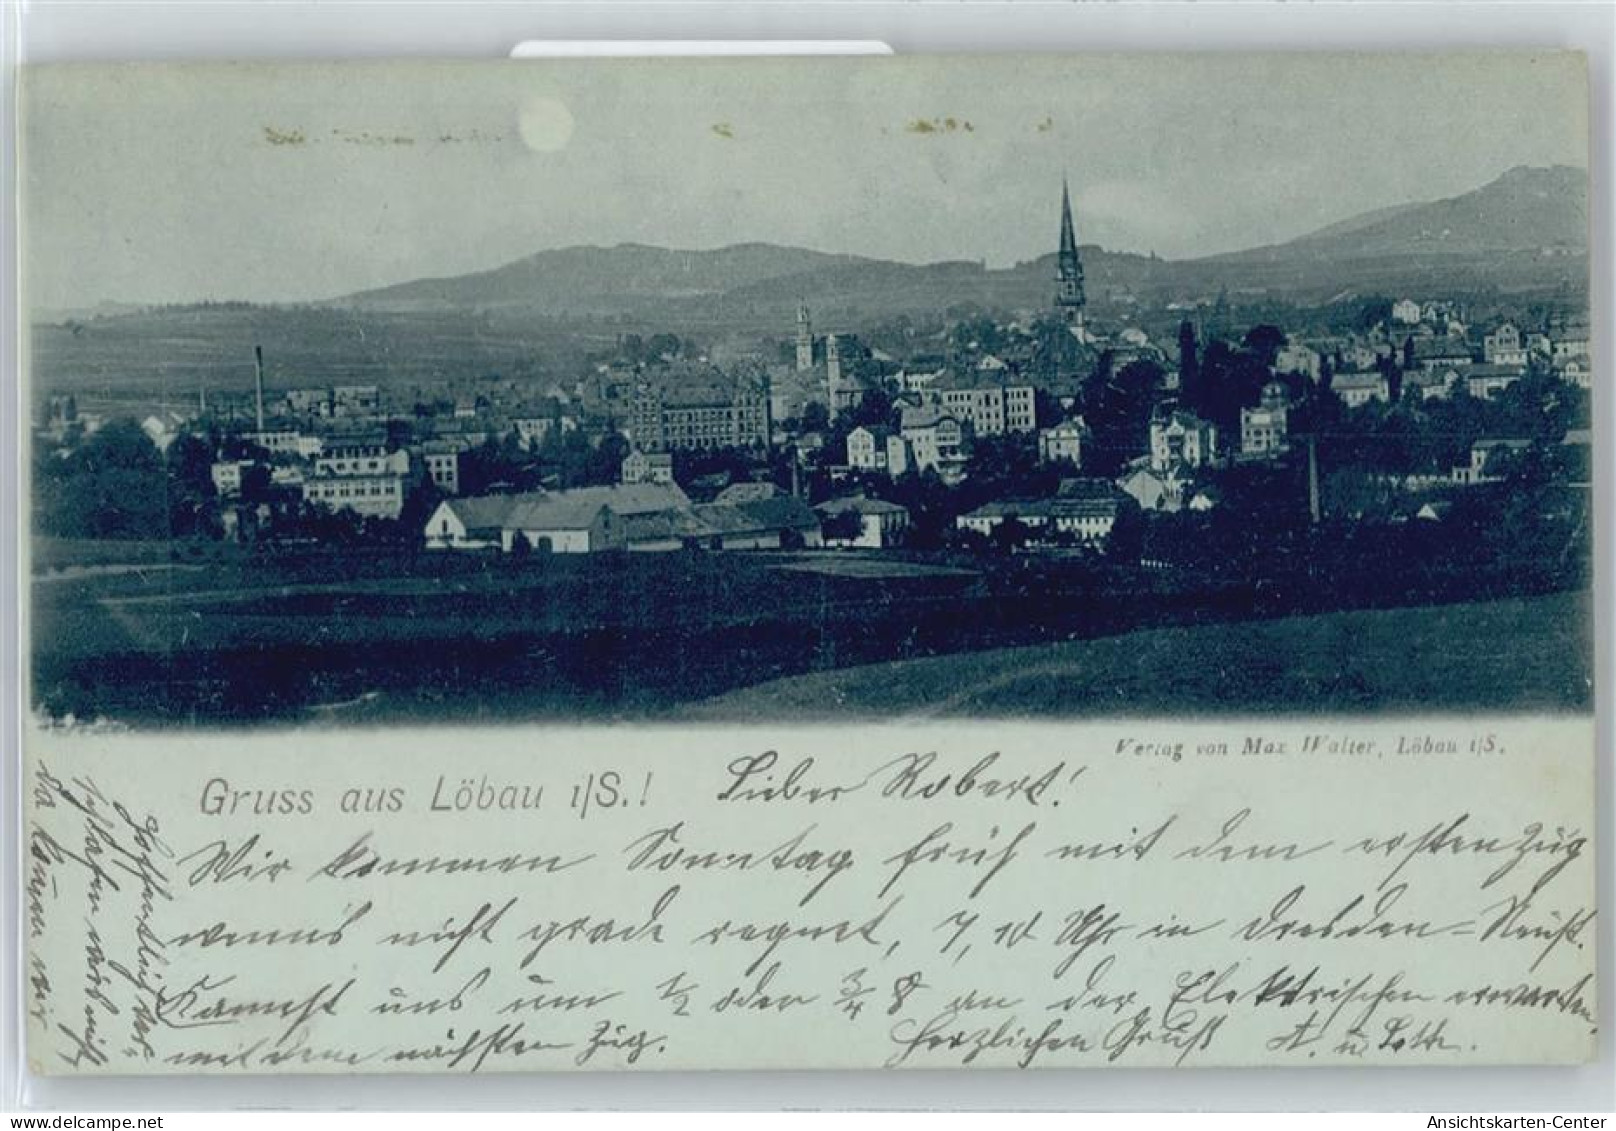 Verlag von Max Walter, Löbau i/S.
Gruss aus Löbau i/S.!
Lieber Robert!
Wir kommen Sonntag früh mit dem ersten Zug
wenns nicht grade regnet, 7,10 Uhr in Dresden=Neust.
Kannst uns um ½ oder ¾ 8 an der Elektrischen erwarten.
Hoffentlich ver=
schlafen wir's nicht
da kämen wir
mit dem nächsten Zug.
Herzlichen Gruß A. u. Lotte.
delcampe.net
Ansichtskarten-Center